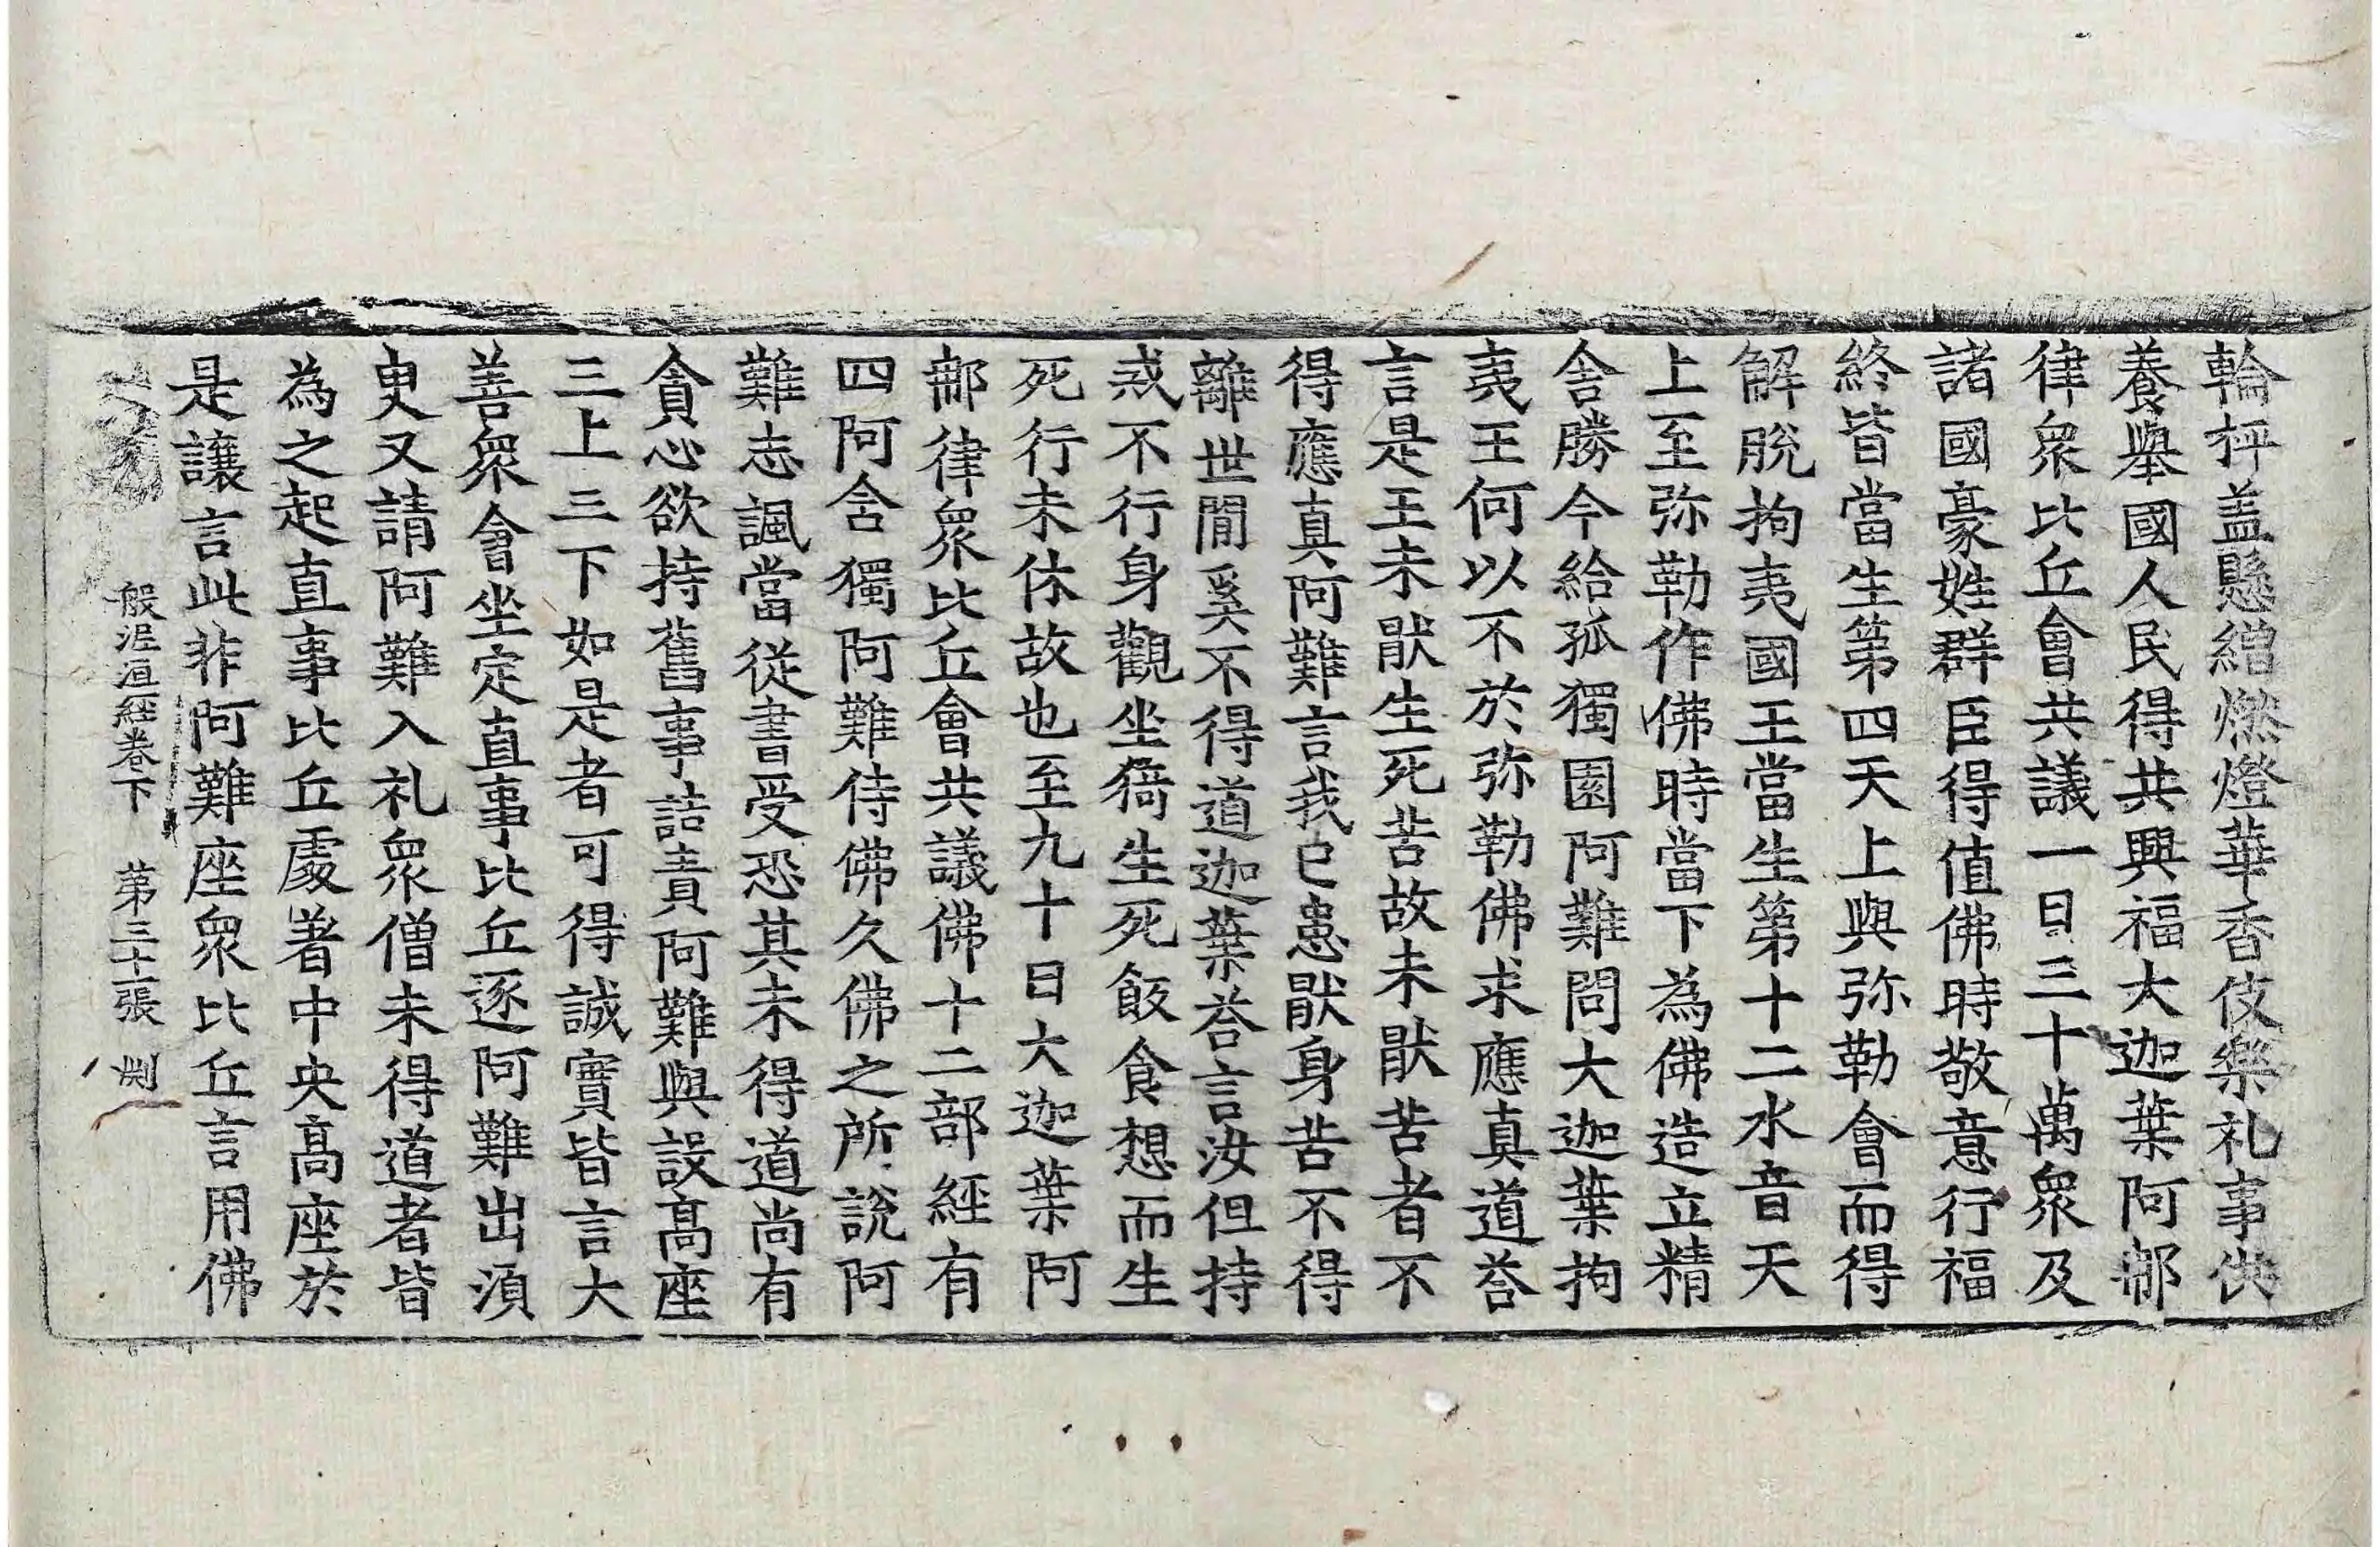 輪枰盖懸繒燃燈華香伎樂礼事供
養舉國人民得共興福大迦葉阿那
律衆比丘會共議一日三十萬衆及
諸國豪姓群臣得值佛時敬意行福
終皆當生第四天上與弥勒會而得
解脫拘夷國王當生第十二水音天
上至弥勒作佛時當下為佛造立精
舍勝今給孤獨園阿難問大迦葉拘
夷王何以不於弥勒佛求應真道荅
言是王未猒生死苦故未猒苦者不
得應真阿難言我已患猒身苦不得
離世間奚不得道迦葉荅言汝但持
戒不行身觀坐猗生死飯食想而生
死行未休故也至九十日大迦葉阿
那律衆比丘會共議佛十二部經有
四阿含獨阿難侍佛久佛之所說阿
難志諷當從書受恐其未得道尚有
貪心欲持舊事詰責阿難與設高座
三上三下如是者可得誠實皆言大
善衆會坐定直事比丘逐阿難出湏
臾又請阿難入礼衆僧未得道者皆
為之起直事比丘處著中央高座於
是讓言此非阿難座衆比丘言用佛
般泥洹經卷下 第三十二張 淵